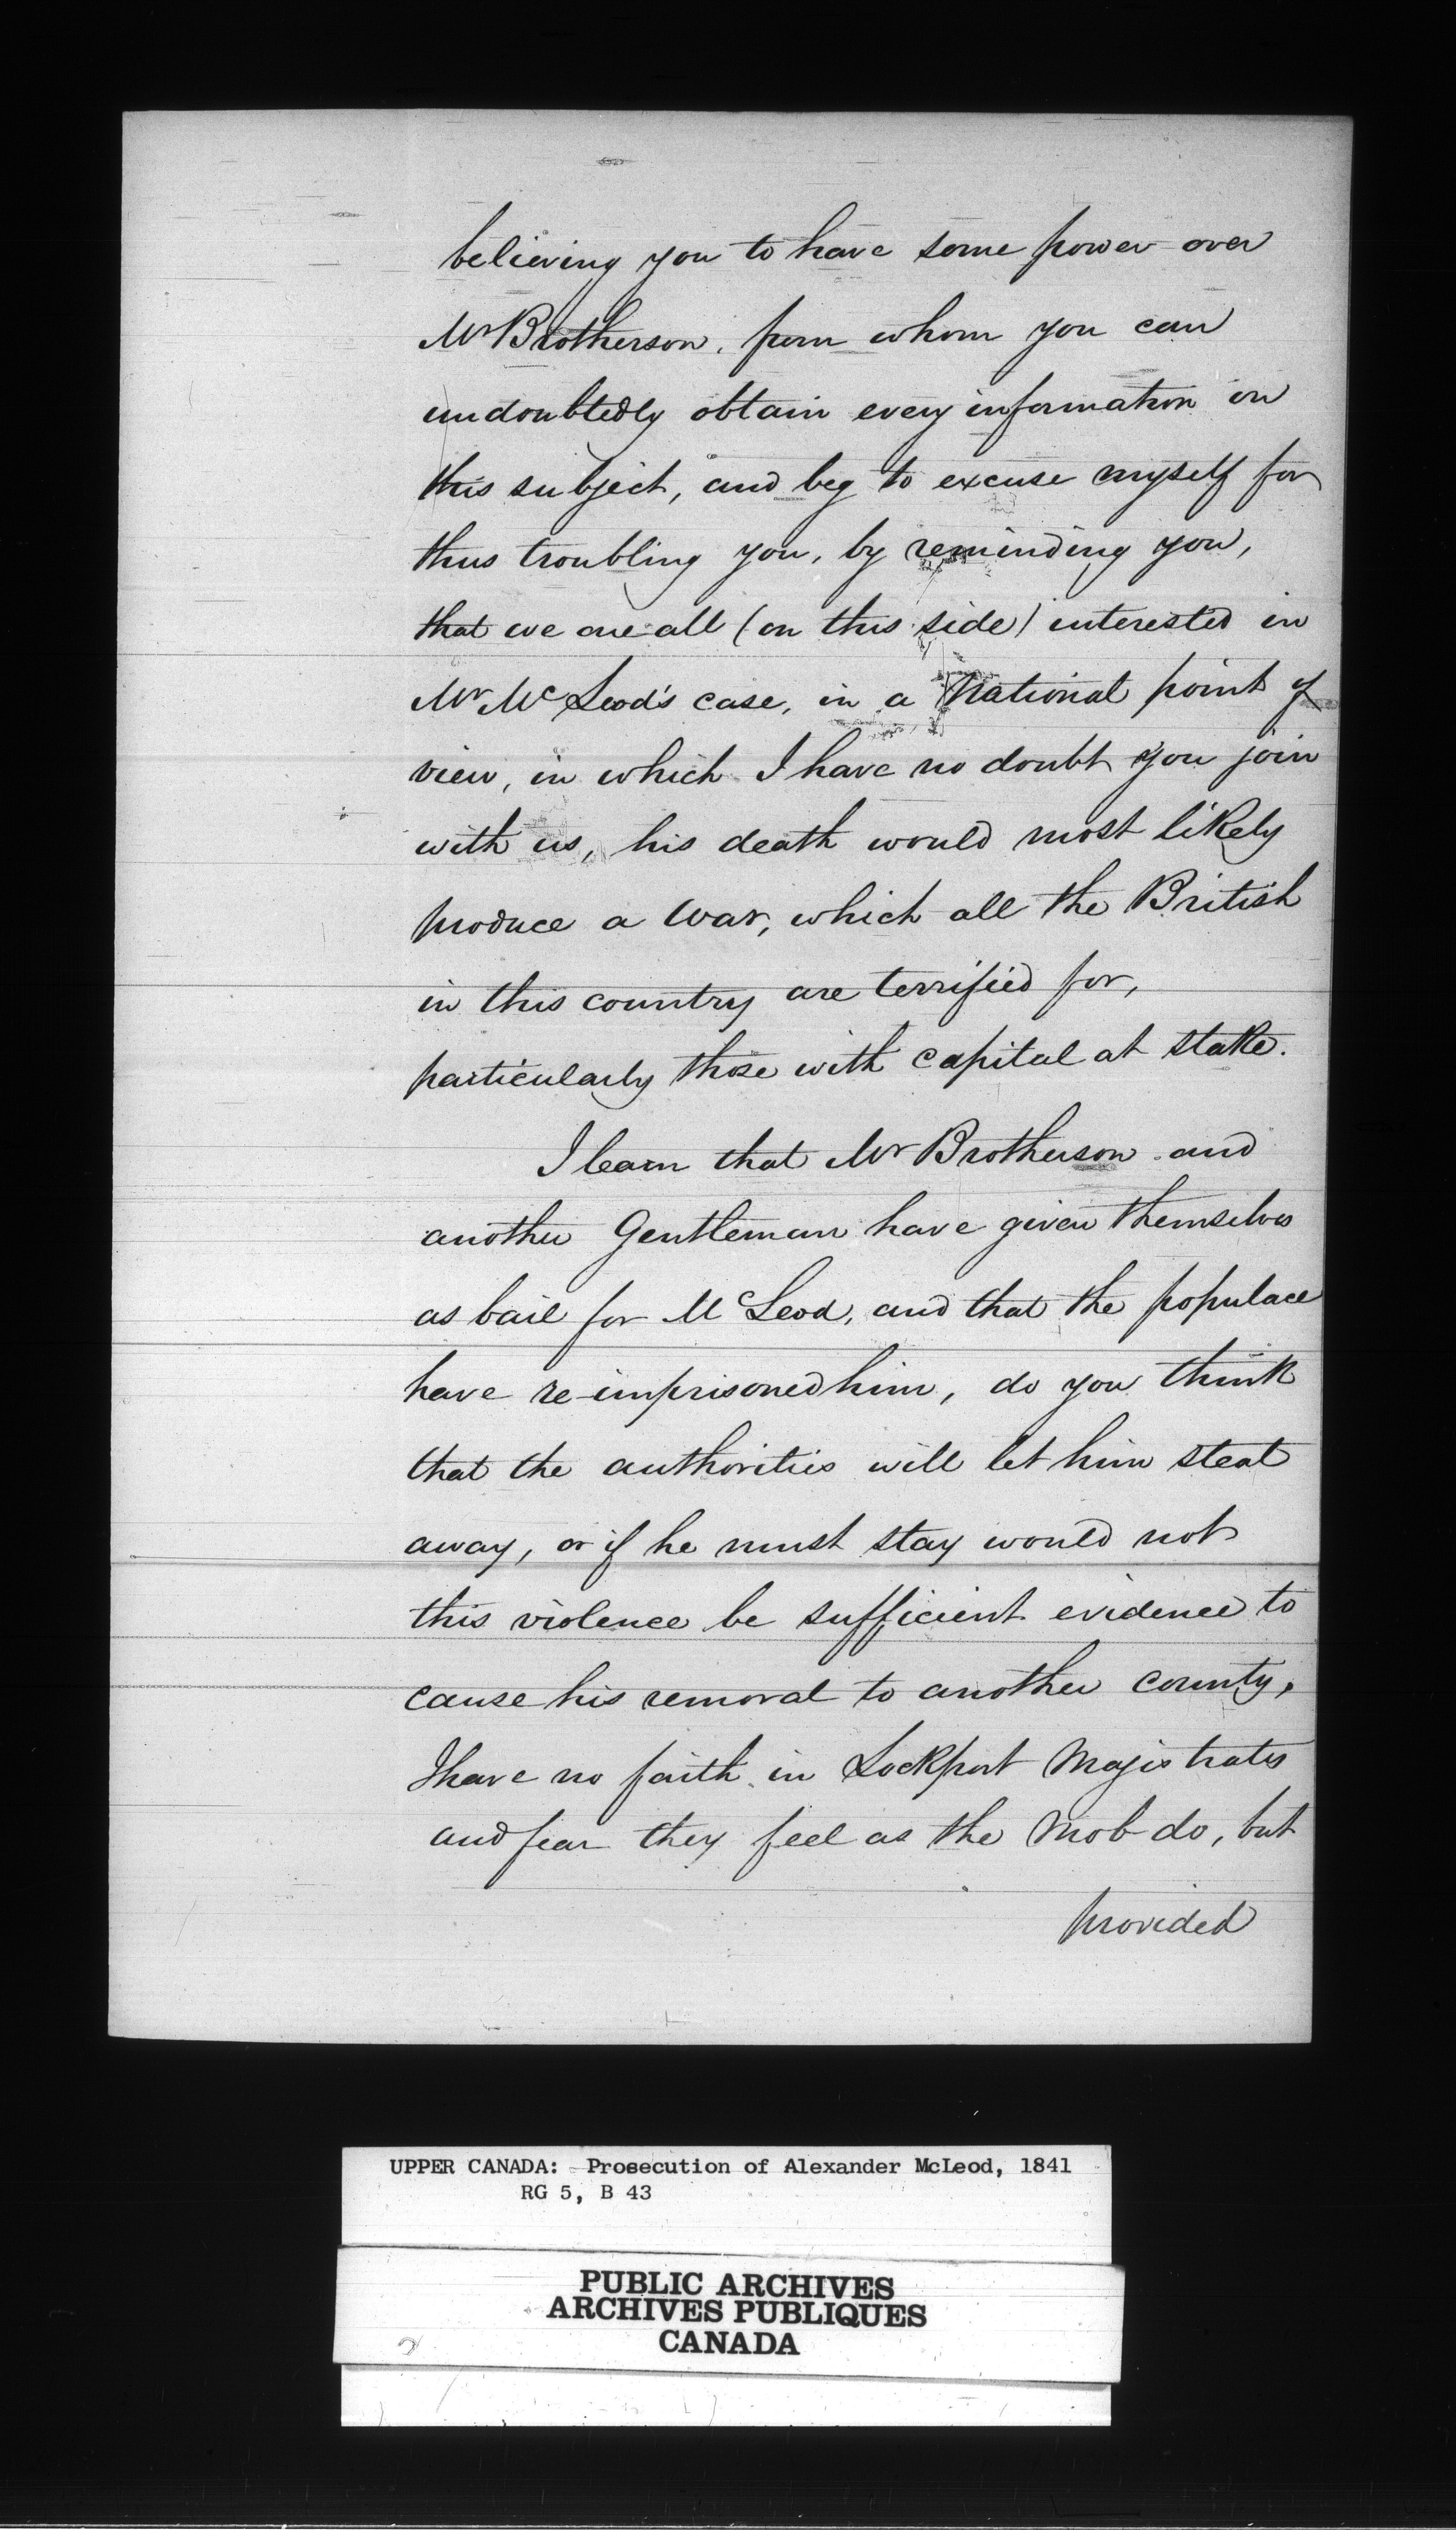 believing you to have some power over
Mr Brotherson, from whom you can
undoubtedly obtain every information on
this subject, and beg to excuse myself for
thus troubling you, by reminding you,
that we are all (on this side) interested in
Mr McLeod's case, in a National point of
view, in which I have no doubt you join
with us, his death would most likely
produce a War, which all the British
in this country are terrified for,
particularly those with capital at stake.
I learn that Mr Brotherson and
another Gentleman have given themselves
as bail for McLeod, and that the populace
have re-imprisoned him, do you think
that the authorities will let him steal
away, or if he must stay would not
this violence be sufficient evidence to
cause his removal to another County,
I have no faith in Lockport Majistrates
and fear they feel as the Mob do, but
provided
UPPER CANADA: Prosecution of Alexander McLeod, 1841
RG 5, B 43
PUBLIC ARCHIVES
ARCHIVES PUBLIQUES
CANADA